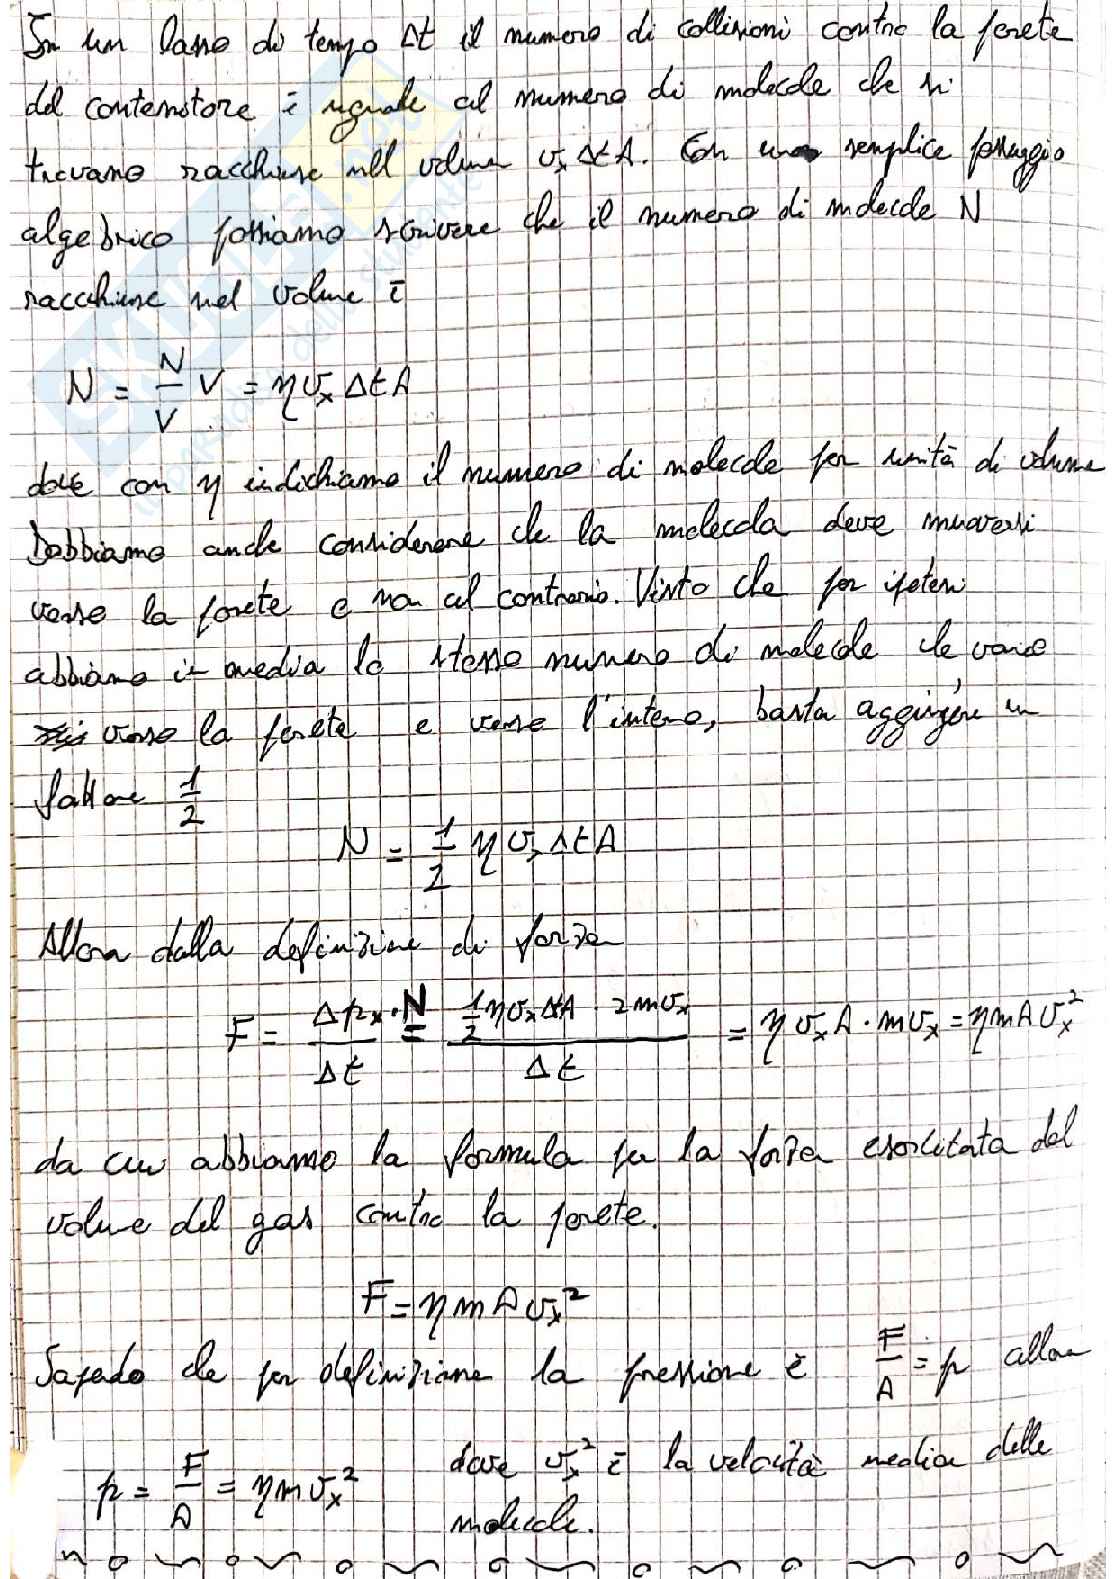 In un lasso di tempo Δt il numero di collisioni contro la parete
del contenitore è uguale al numero di molecole che si
trovano racchiuse nel volume vₓ Δt A. Con un semplice passaggio
algebrico possiamo scrivere che il numero di molecole N
racchiuse nel volume è
N = N/V V = η vₓ Δt A
dove con η indichiamo il numero di molecole per unità di volume
Dobbiamo anche considerare che la molecola deve muoversi
verso la parete e non al contrario. Visto che per ipotesi
abbiamo in media lo stesso numero di molecole che vanno
verso la parete e verso l'interno, basta aggiungere un
fattore 1/2
N = 1/2 η vₓ Δt A
Allora dalla definizione di forza
F = Δpₓ · N / Δt = 1/2 η vₓ Δt A · 2 m vₓ / Δt = η vₓ A · m vₓ = η m A vₓ²
da cui abbiamo la formula per la forza esercitata del
volume del gas contro la parete.
F = η m A vₓ²
Sapendo che per definizione la pressione è F/A = p allora
p = F/A = η m vₓ² dove vₓ² è la velocità media delle
molecole.